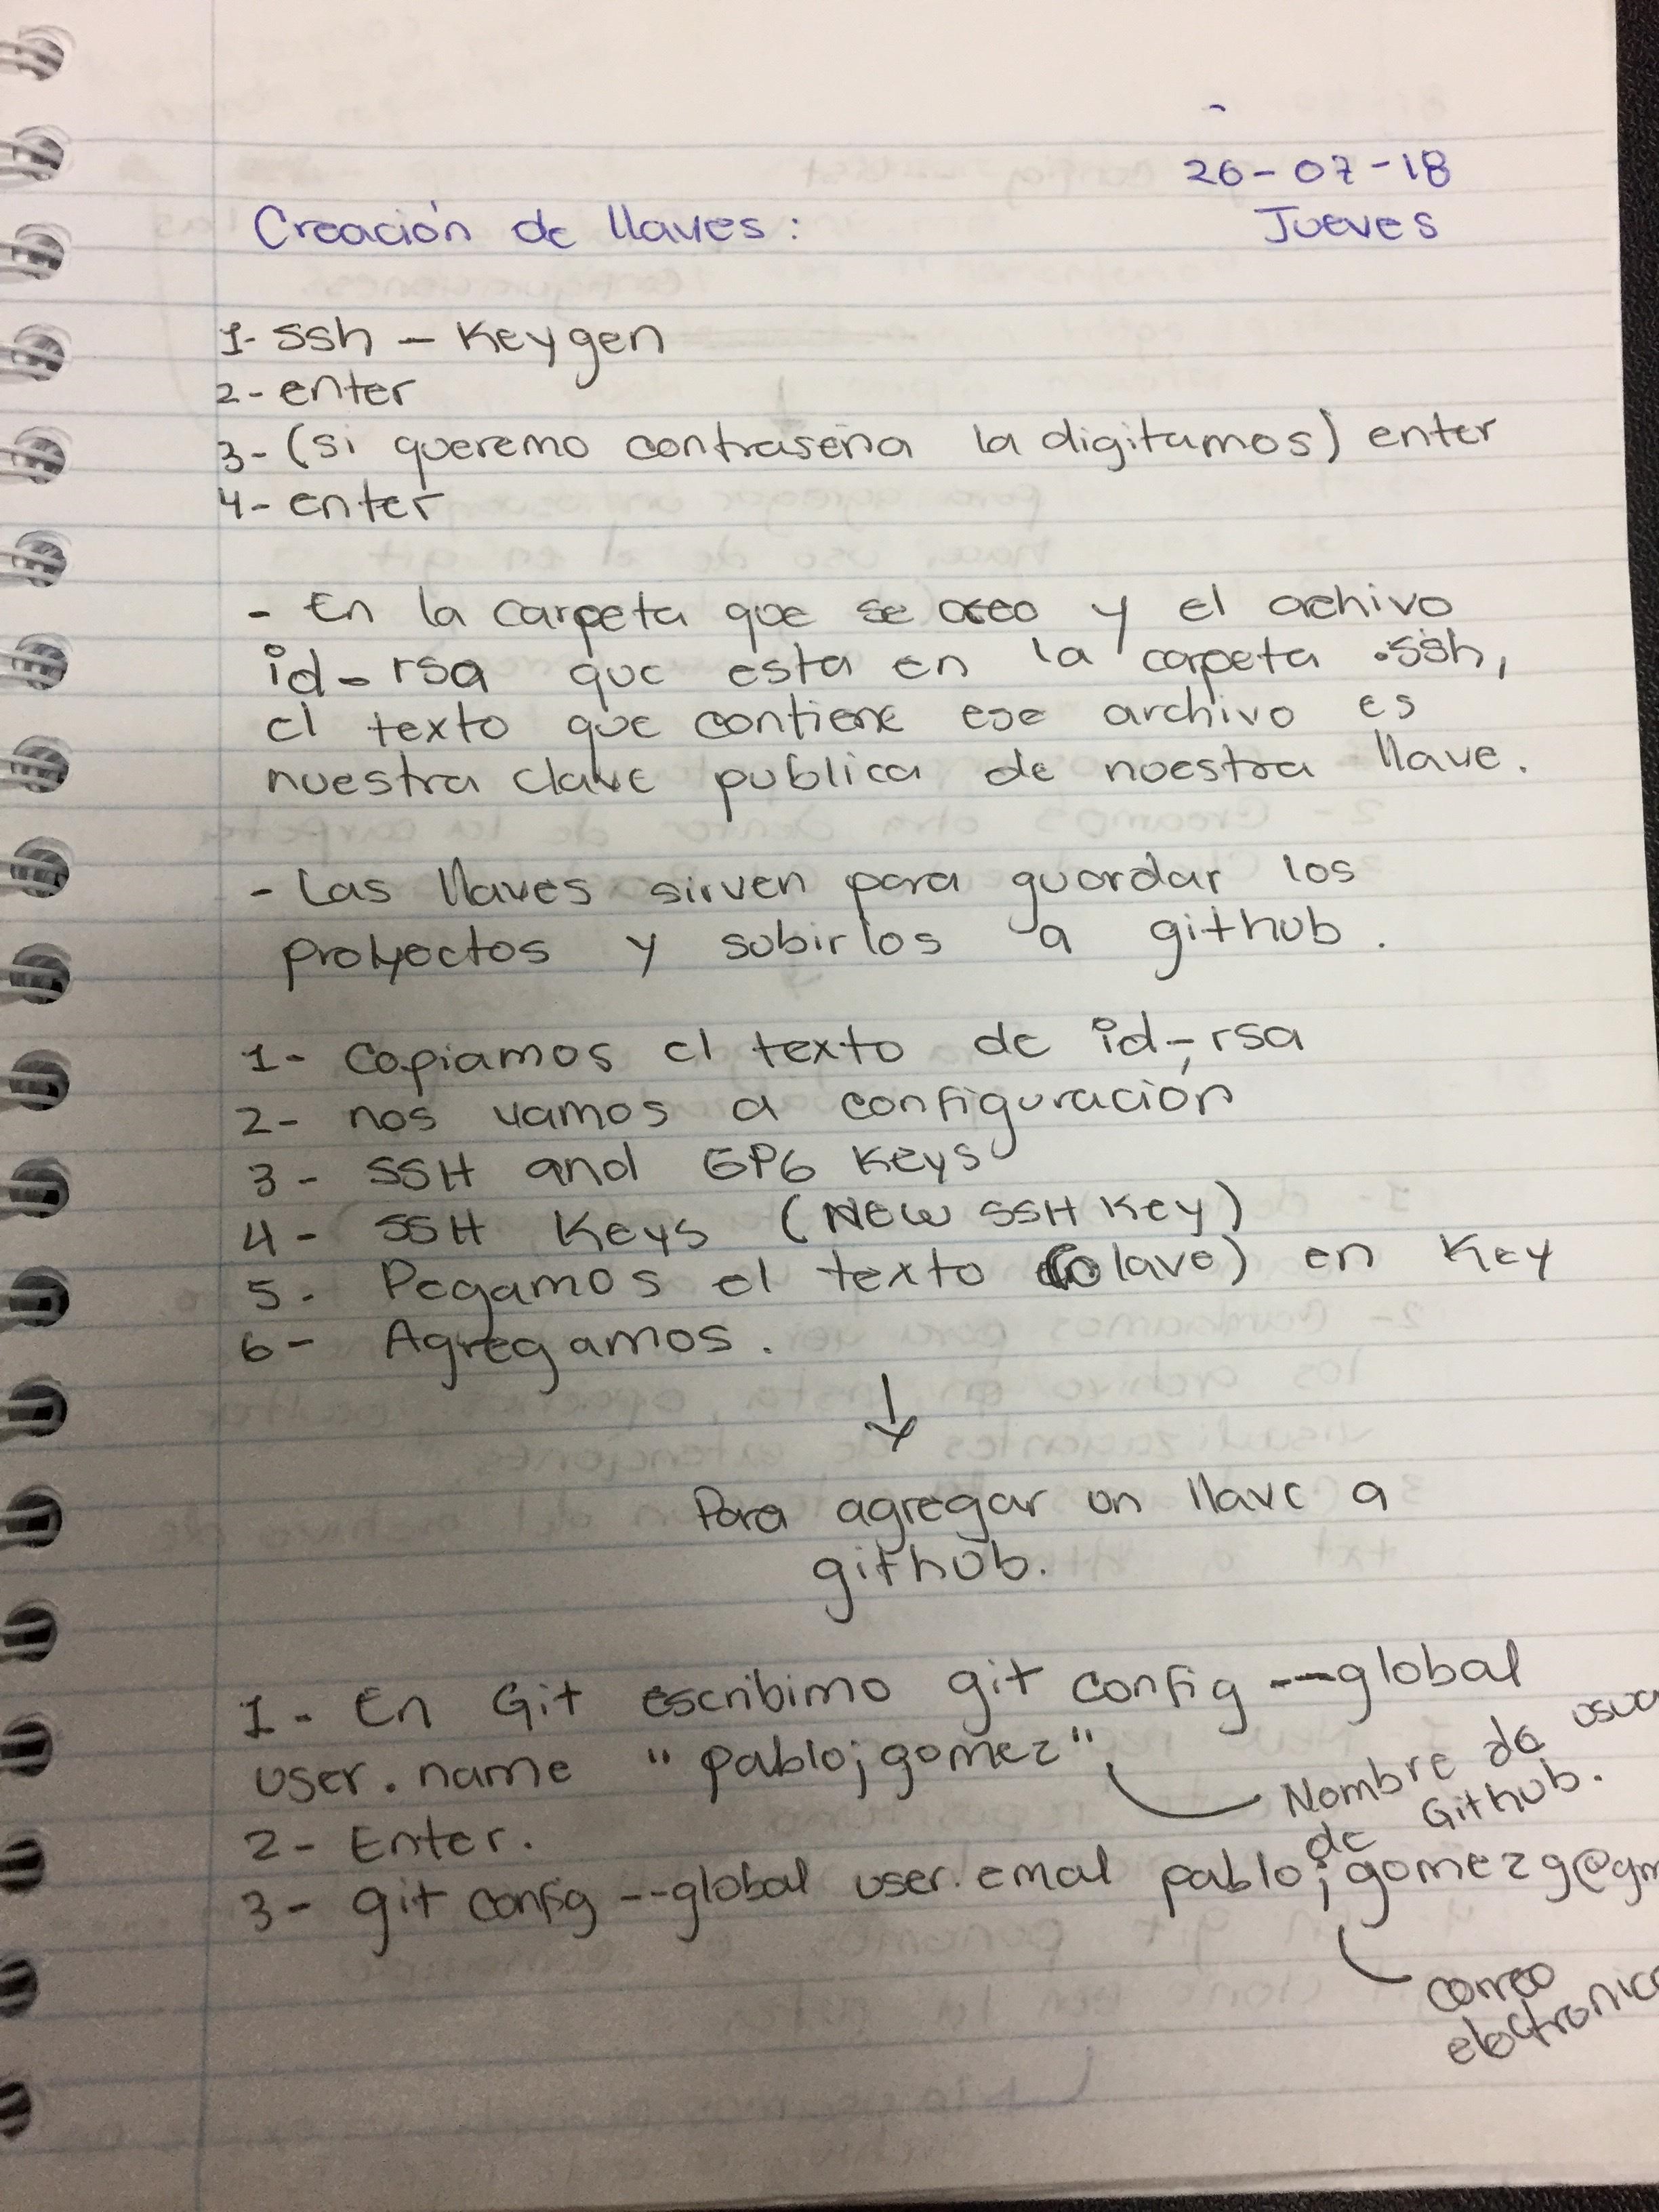 26-07-18
Creación de llaves:
Jueves
1- ssh - Keygen
2- enter
3- (si queremo contraseña la digitamos) enter
4- enter
- En la carpeta que se creo y el archivo
id-rsa que esta en la carpeta .ssh,
el texto que contiene ese archivo es
nuestra clave publica de nuestra llave.
- Las llaves sirven para guardar los
proyectos y subirlos a github.
1- Copiamos el texto de id-rsa
2- nos vamos a configuración
3- SSH and GPG Keys
4- SSH Keys (New SSH Key)
5- Pegamos el texto (clave) en Key
6- Agregamos.
↓
Para agregar un llave a
github.
1- En Git escribimo git config --global
user.name "pablojgomez"
Nombre de
de Github.
2- Enter.
3- git config --global user.emal pablojgomezg@gm
correo
electronico